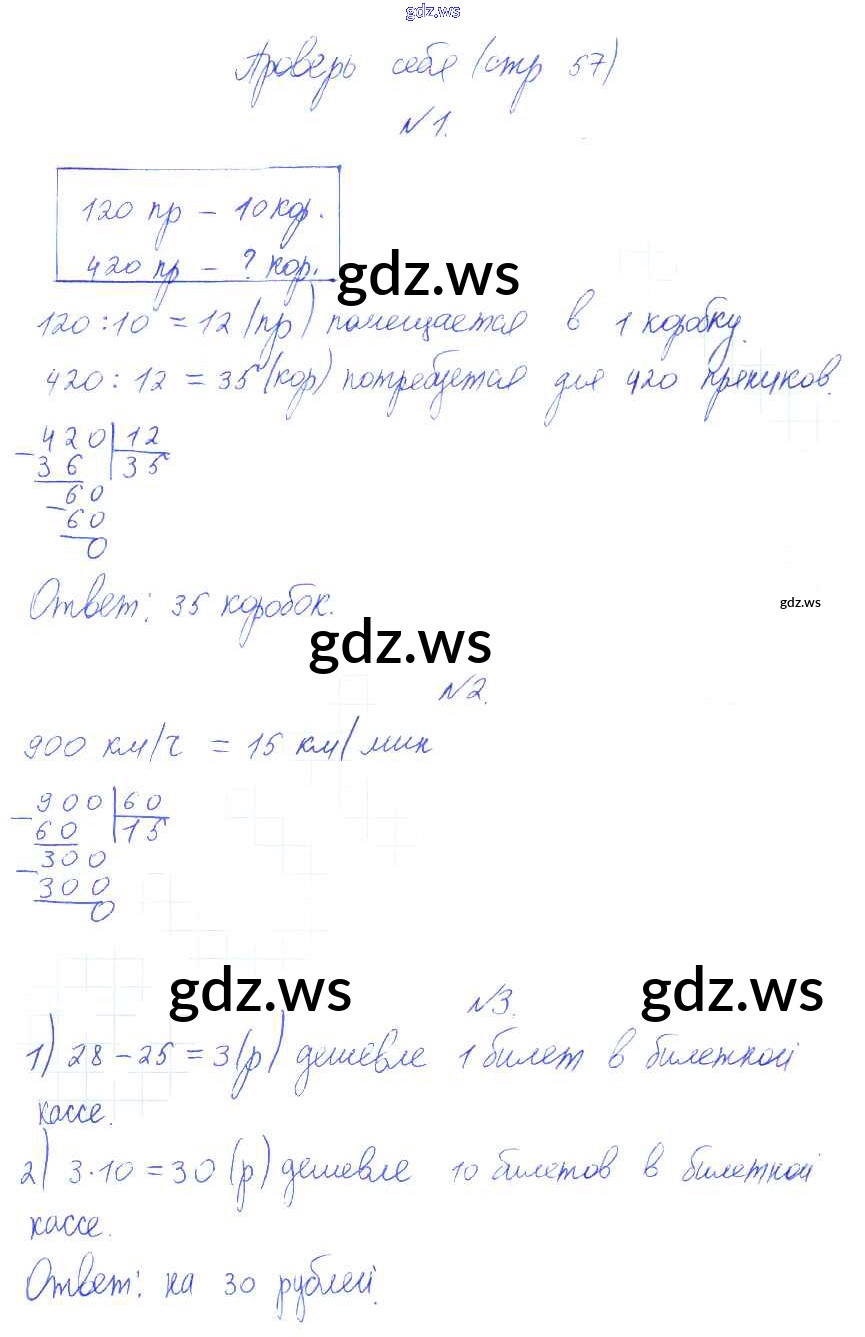 gdz.ws
Проверь себя (стр 57)
№1.
120 пр – 10 кор.
420 пр – ? кор.
gdz.ws
120 : 10 = 12 (пр) помещается в 1 коробку.
420 : 12 = 35 (кор) потребуется для 420 пряников.
420 12
36 35
60
60
0
Ответ: 35 коробок.
gdz.ws
gdz.ws
№2.
900 км/ч = 15 км/мин
900 60
60 15
300
300
0
gdz.ws №3. gdz.ws
1) 28 – 25 = 3 (р) дешевле 1 билет в билетной
кассе.
2) 3 · 10 = 30 (р) дешевле 10 билетов в билетной
кассе.
Ответ: на 30 рублей.